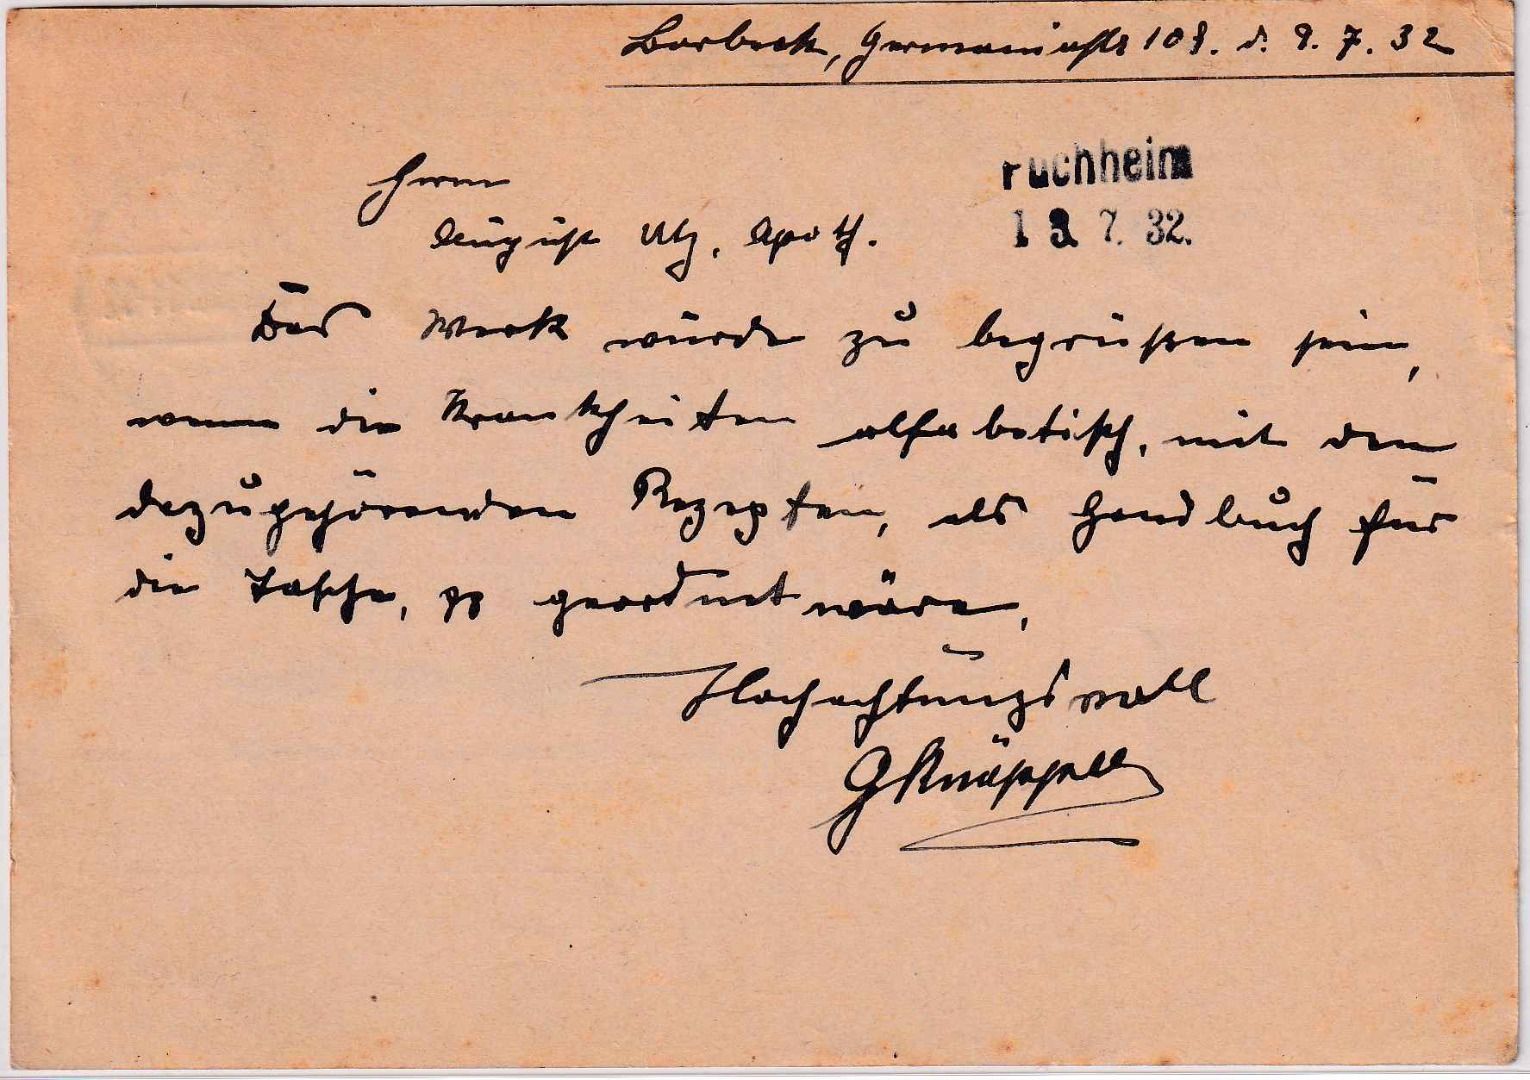 Borbeck, Germaniastr 108. d. 9. 7. 32
Puchheim
13. 7. 32.
Herrn
August Utz, Apoth.
Das Werk würde zu begrüßen sein,
wenn die Krankheiten alfabetisch, mit den
dazugehörenden Rezepten, als Handbuch für
die Tasche, geordnet wäre.
Hochachtungsvoll
G Knäppel